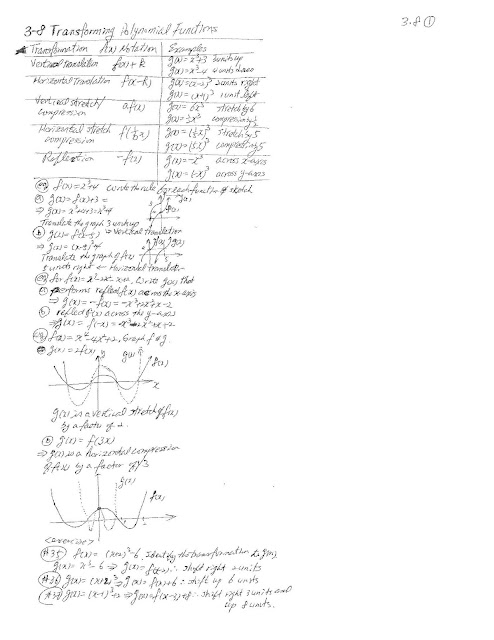 3.8 ①
3-8 Transforming Polynomial Functions
Transformation f(x) Notation Examples
Vertical translation f(x)+k g(x)=x³+3 3 units up
g(x)=x³-4 4 units down
Horizontal translation f(x-h) g(x)=(x-2)³ 2 units right
g(x)=(x+1)³ 1 unit left
Vertical stretch/ af(x) g(x)=6x³ stretch by 6
compression g(x)=½x³ compression by ½
Horizontal stretch f(1/b x) g(x)=(⅕x)³ stretch by 5
compression g(x)=(5x)³ compress by 5
Reflection -f(x) g(x)=-x³ across x-axis
g(x)=(-x)³ across y-axis
f(x)=x³+4 write the rule for each function & sketch
ⓐ g(x)=f(x)+3 =
Translate the graph 3 units up
ⓑ g(x)=f(x-5) Vertical translation
⇒ g(x)=(x-5)³+4
Translate the graph of f(x)
5 units right ← Horizontal translation
write g(x) that
ⓐ performs reflect f(x) across the x-axis
⇒ g(x)=-f(x)=-x³+2x²+x-2
ⓑ reflect f(x) across the y-axis
⇒ g(x)=f(-x)=
f(x)=x⁴-4x²+2, Graph f & g.
ⓐ g(x)=2f(x) y g(x) f(x)
x
g(x) is a vertical stretch of f(x)
by a factor of 2.
ⓑ g(x)=f(3x)
⇒ g(x) is a horizontal compression
of f(x) by a factor of 1/3
g(x)
f(x)
<exercise>
#35 f(x)=(x+2)³-6, Identify the transformation
g(x)=x³-6 ⇒ g(x)=f(x-2) ∴ shift right 2 units
g(x)=(x+2)³ ⇒ g(x)=f(x)+6 ∴ shift up 6 units
g(x)=(x-1)³+2 ⇒ g(x)=f(x-3)+8 ∴ shift right 3 units and
up 8 units.